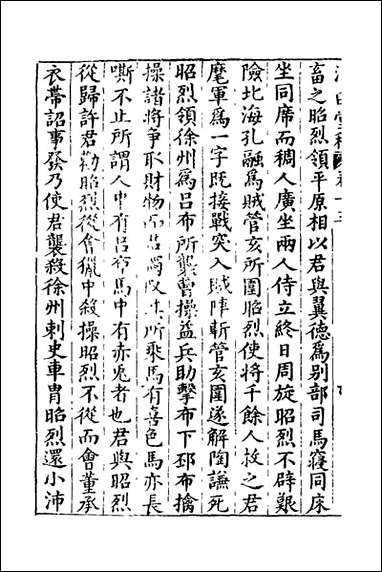 畜之昭烈領平原相以君與翼德爲别部司馬寢同床
坐同席而稠人廣坐兩人侍立終日周旋昭烈不辟艱
險北海孔融爲賊管亥所圍昭烈使將千餘人救之君
麾軍爲一字既接戰突入賊陣斬管亥圍遂解陶謙死
昭烈領徐州爲吕布所襲曹操益兵助擊布下邳布擒
操諸將爭取財物而君獨取其所乘馬有喜色馬亦長
嘶不止所謂人中有吕布馬中有赤兎者也君與昭烈
從歸許君勸昭烈從會獵中殺操昭烈不從而會董承
衣帶詔事發乃使君襲殺徐州刺史車胄昭烈還小沛